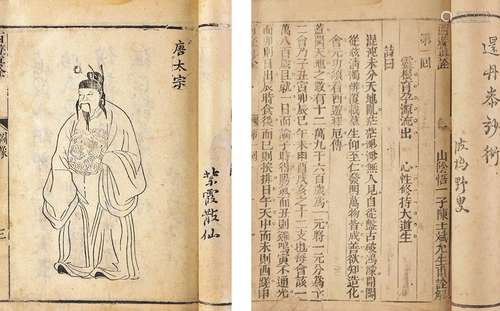 唐太宗
紫霞散仙
圖像
三
山陰悟一子陳士斌允生甫詮解
第一回
靈根育孕源流出 心性修持大道生
詩曰
混沌未分天地亂茫茫渺渺無人見自從盤古破鴻濛開闢
從茲清濁辨覆載羣生仰至仁發明萬物皆成善欲知造化
會元功須看西遊釋厄傳
蓋聞天地之數有十二萬九千六百歲為一元將一元分為十二
會乃子丑寅卯辰巳午未申酉戌亥之十二支也每會該一
萬八百歲且就一日而論子時得陽氣而丑則雞鳴寅不通光
而卯則日出辰時食後而巳則挨排日午天中而未則西蹉申